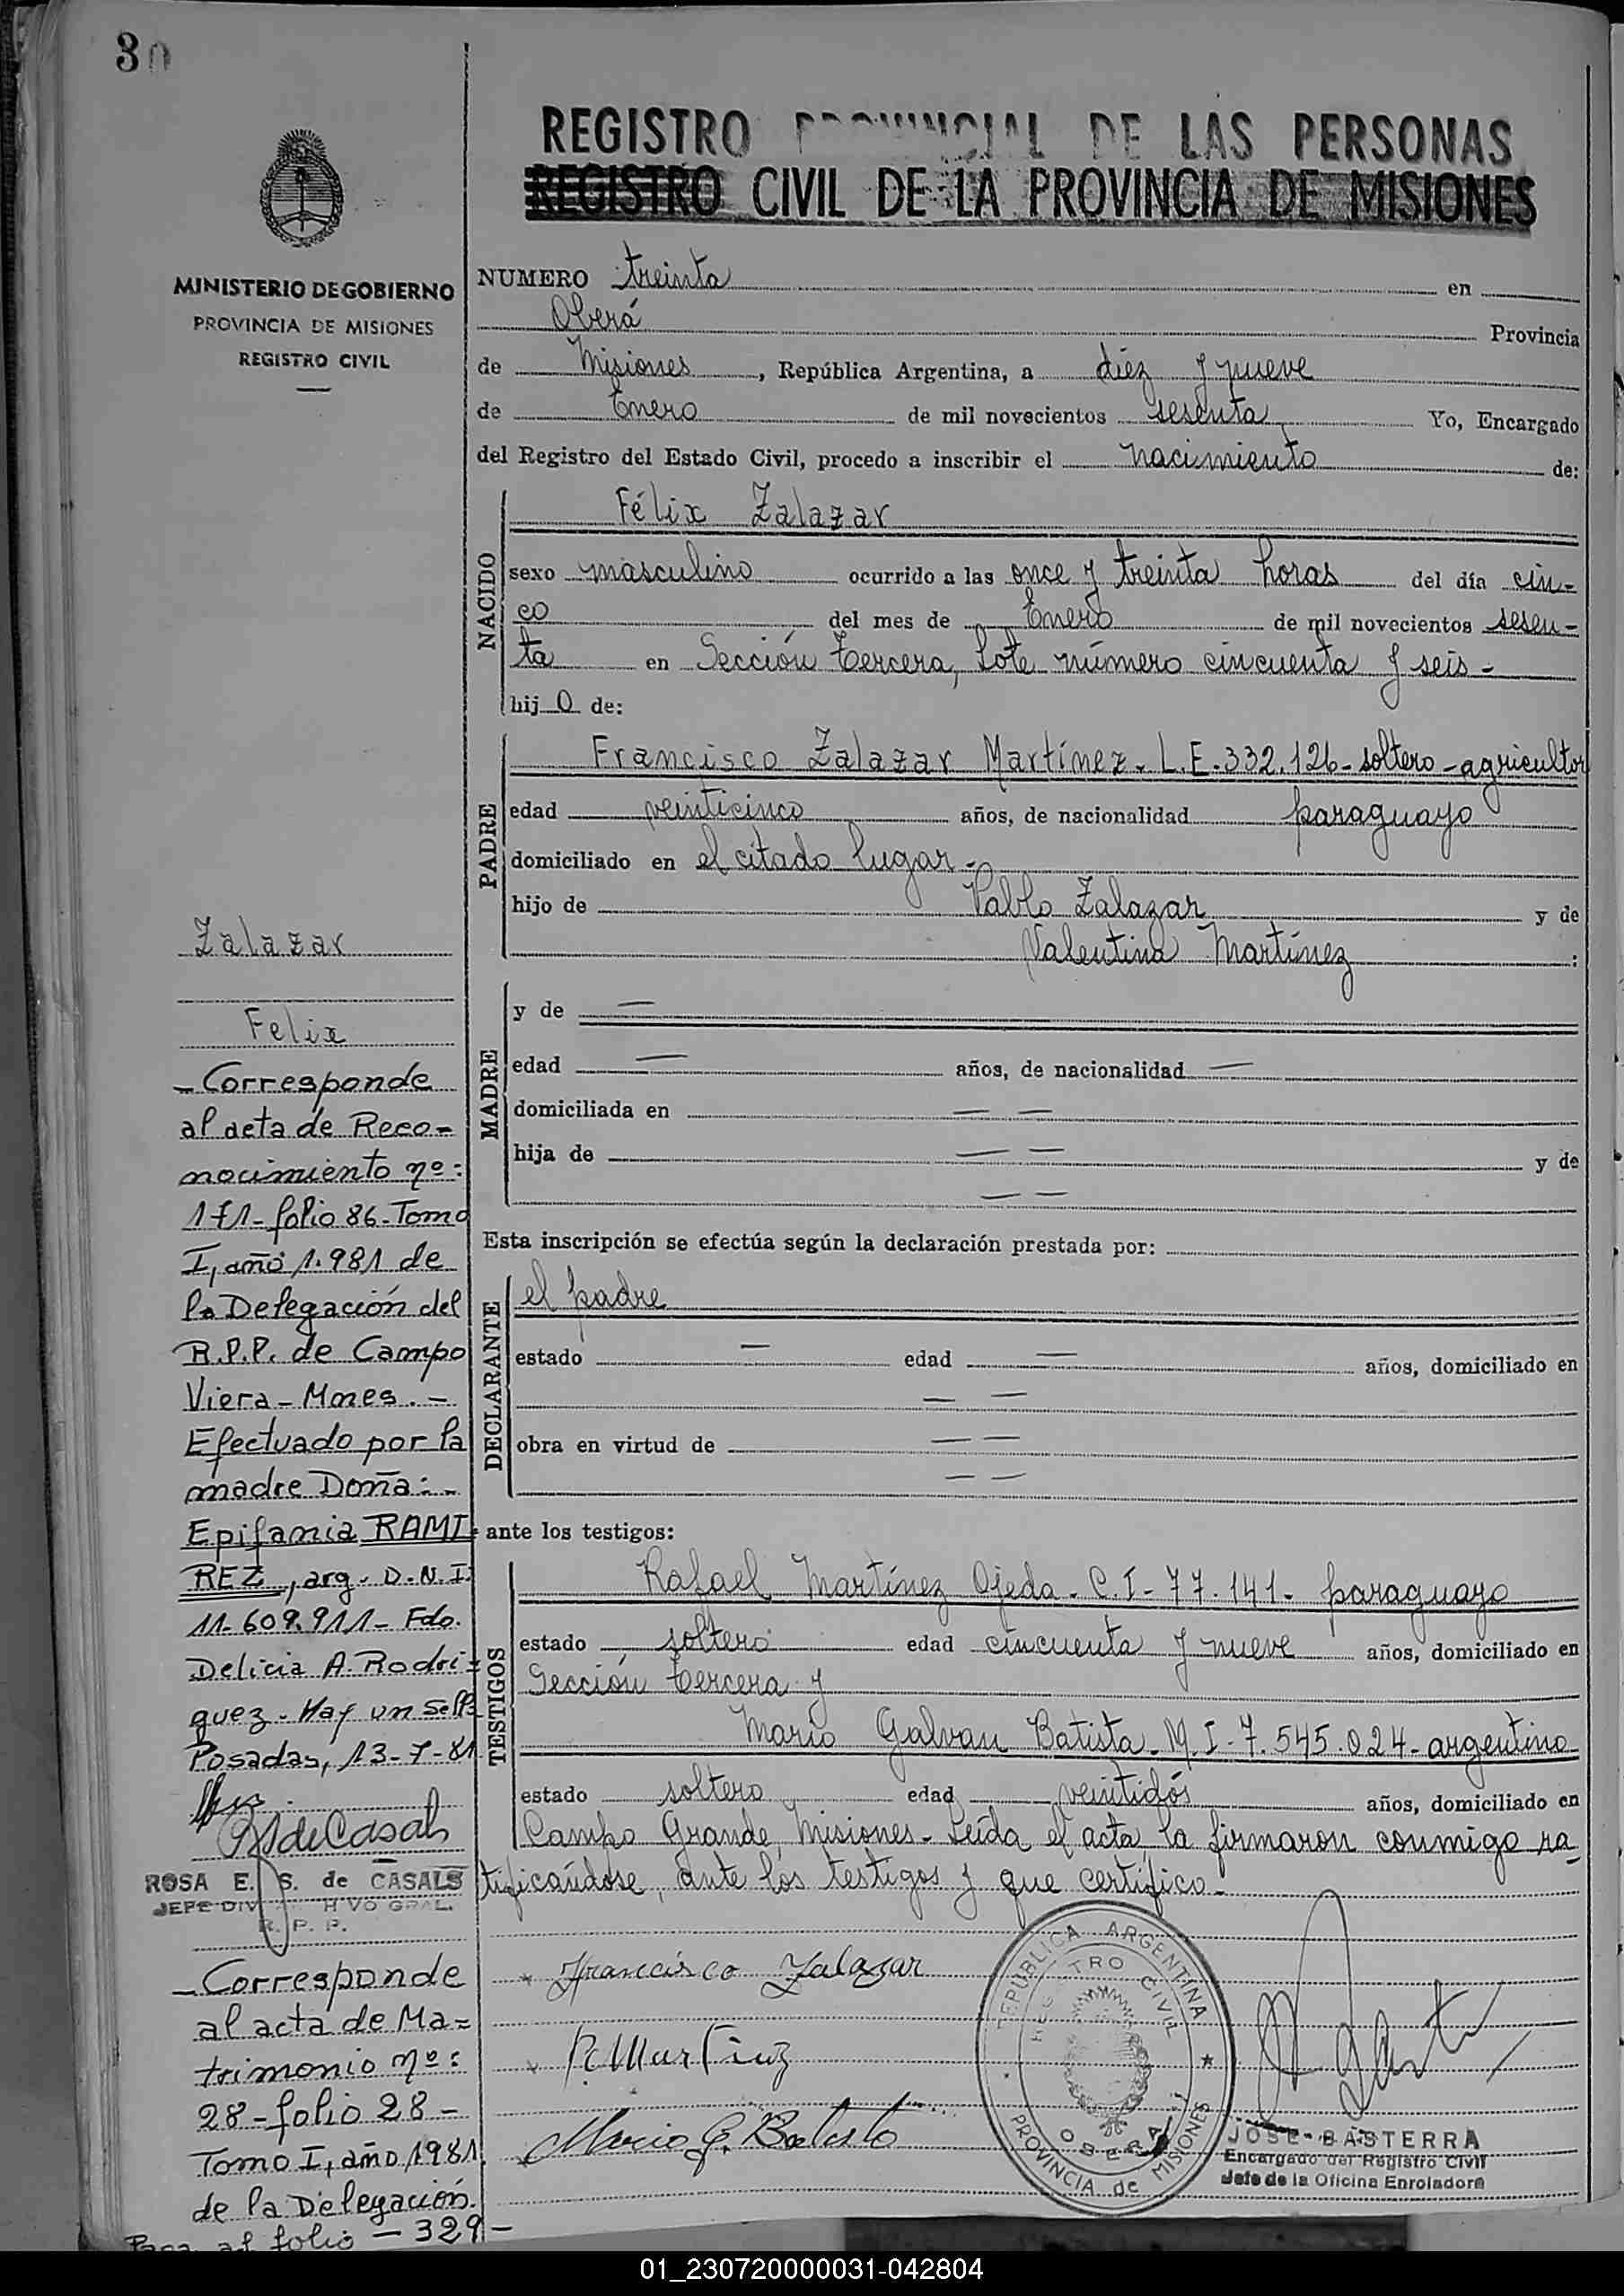 30
REGISTRO PROVINCIAL DE LAS PERSONAS
REGISTRO CIVIL DE LA PROVINCIA DE MISIONES
MINISTERIO DE GOBIERNO
PROVINCIA DE MISIONES
REGISTRO CIVIL
NUMERO treinta en
Oberá Provincia
de Misiones, República Argentina, a diéz y nueve
de Enero de mil novecientos sesenta Yo, Encargado
del Registro del Estado Civil, procedo a inscribir el nacimiento de:
NACIDO
Félix Zalazar
sexo masculino ocurrido a las once y treinta horas del día cin-
co del mes de Enero de mil novecientos sesen-
ta en Sección tercera, Lote número cincuenta y seis -
hijo de:
PADRE
Francisco Zalazar Martínez - L.E. 332.126 - soltero - agricultor
edad veinticinco años, de nacionalidad paraguayo
domiciliado en el citado lugar -
hijo de Pablo Zalazar y de
Valentina Martínez :
MADRE
y de —
edad — años, de nacionalidad —
domiciliada en — —
hija de — — y de
— —
Esta inscripción se efectúa según la declaración prestada por:
DECLARANTE
el padre
estado — edad — años, domiciliado en
— —
obra en virtud de — —
— —
ante los testigos:
TESTIGOS
Rafael Martínez Ojeda - C.I - 77.141 - paraguayo
estado soltero edad cincuenta y nueve años, domiciliado en
Sección tercera y
Mario Galvan Batista - M.I - 7.545.024 - argentino
estado soltero edad veintidós años, domiciliado en
Campo Grande, Misiones - Leída el acta, la firmaron conmigo ra-
tificándose, ante los testigos y que certifico -
Francisco Zalazar
R Martinz
Mario G. Batista
REPUBLICA ARGENTINA
REGISTRO CIVIL
OBERA
PROVINCIA de MISIONES
JOSE BASTERRA
Encargado del Registro Civil
Jefe de la Oficina Enroladora
Zalazar
Felix
- Corresponde
al acta de Reco=
nocimiento nº:
171 - folio 86 - Tomo
I, año 1.981 de
la Delegación del
R.P.P. de Campo
Viera - Mnes. -
Efectuado por la
madre Doña: -
Epifania RAMI=
REZ, arg. D.N.I.
11.609.911 - Fdo.
Delicia A. Rodri=
guez - Hay un sello
Posadas, 13-7-81
RSdeCasals
ROSA E. S. de CASALS
JEFE DIV HIVO GRAL.
R. P. P.
- Corresponde
al acta de Ma=
trimonio nº:
28 - folio 28 -
Tomo I, año 1981
de la Delegación
Pasa al folio - 329 -
01_230720000031-042804